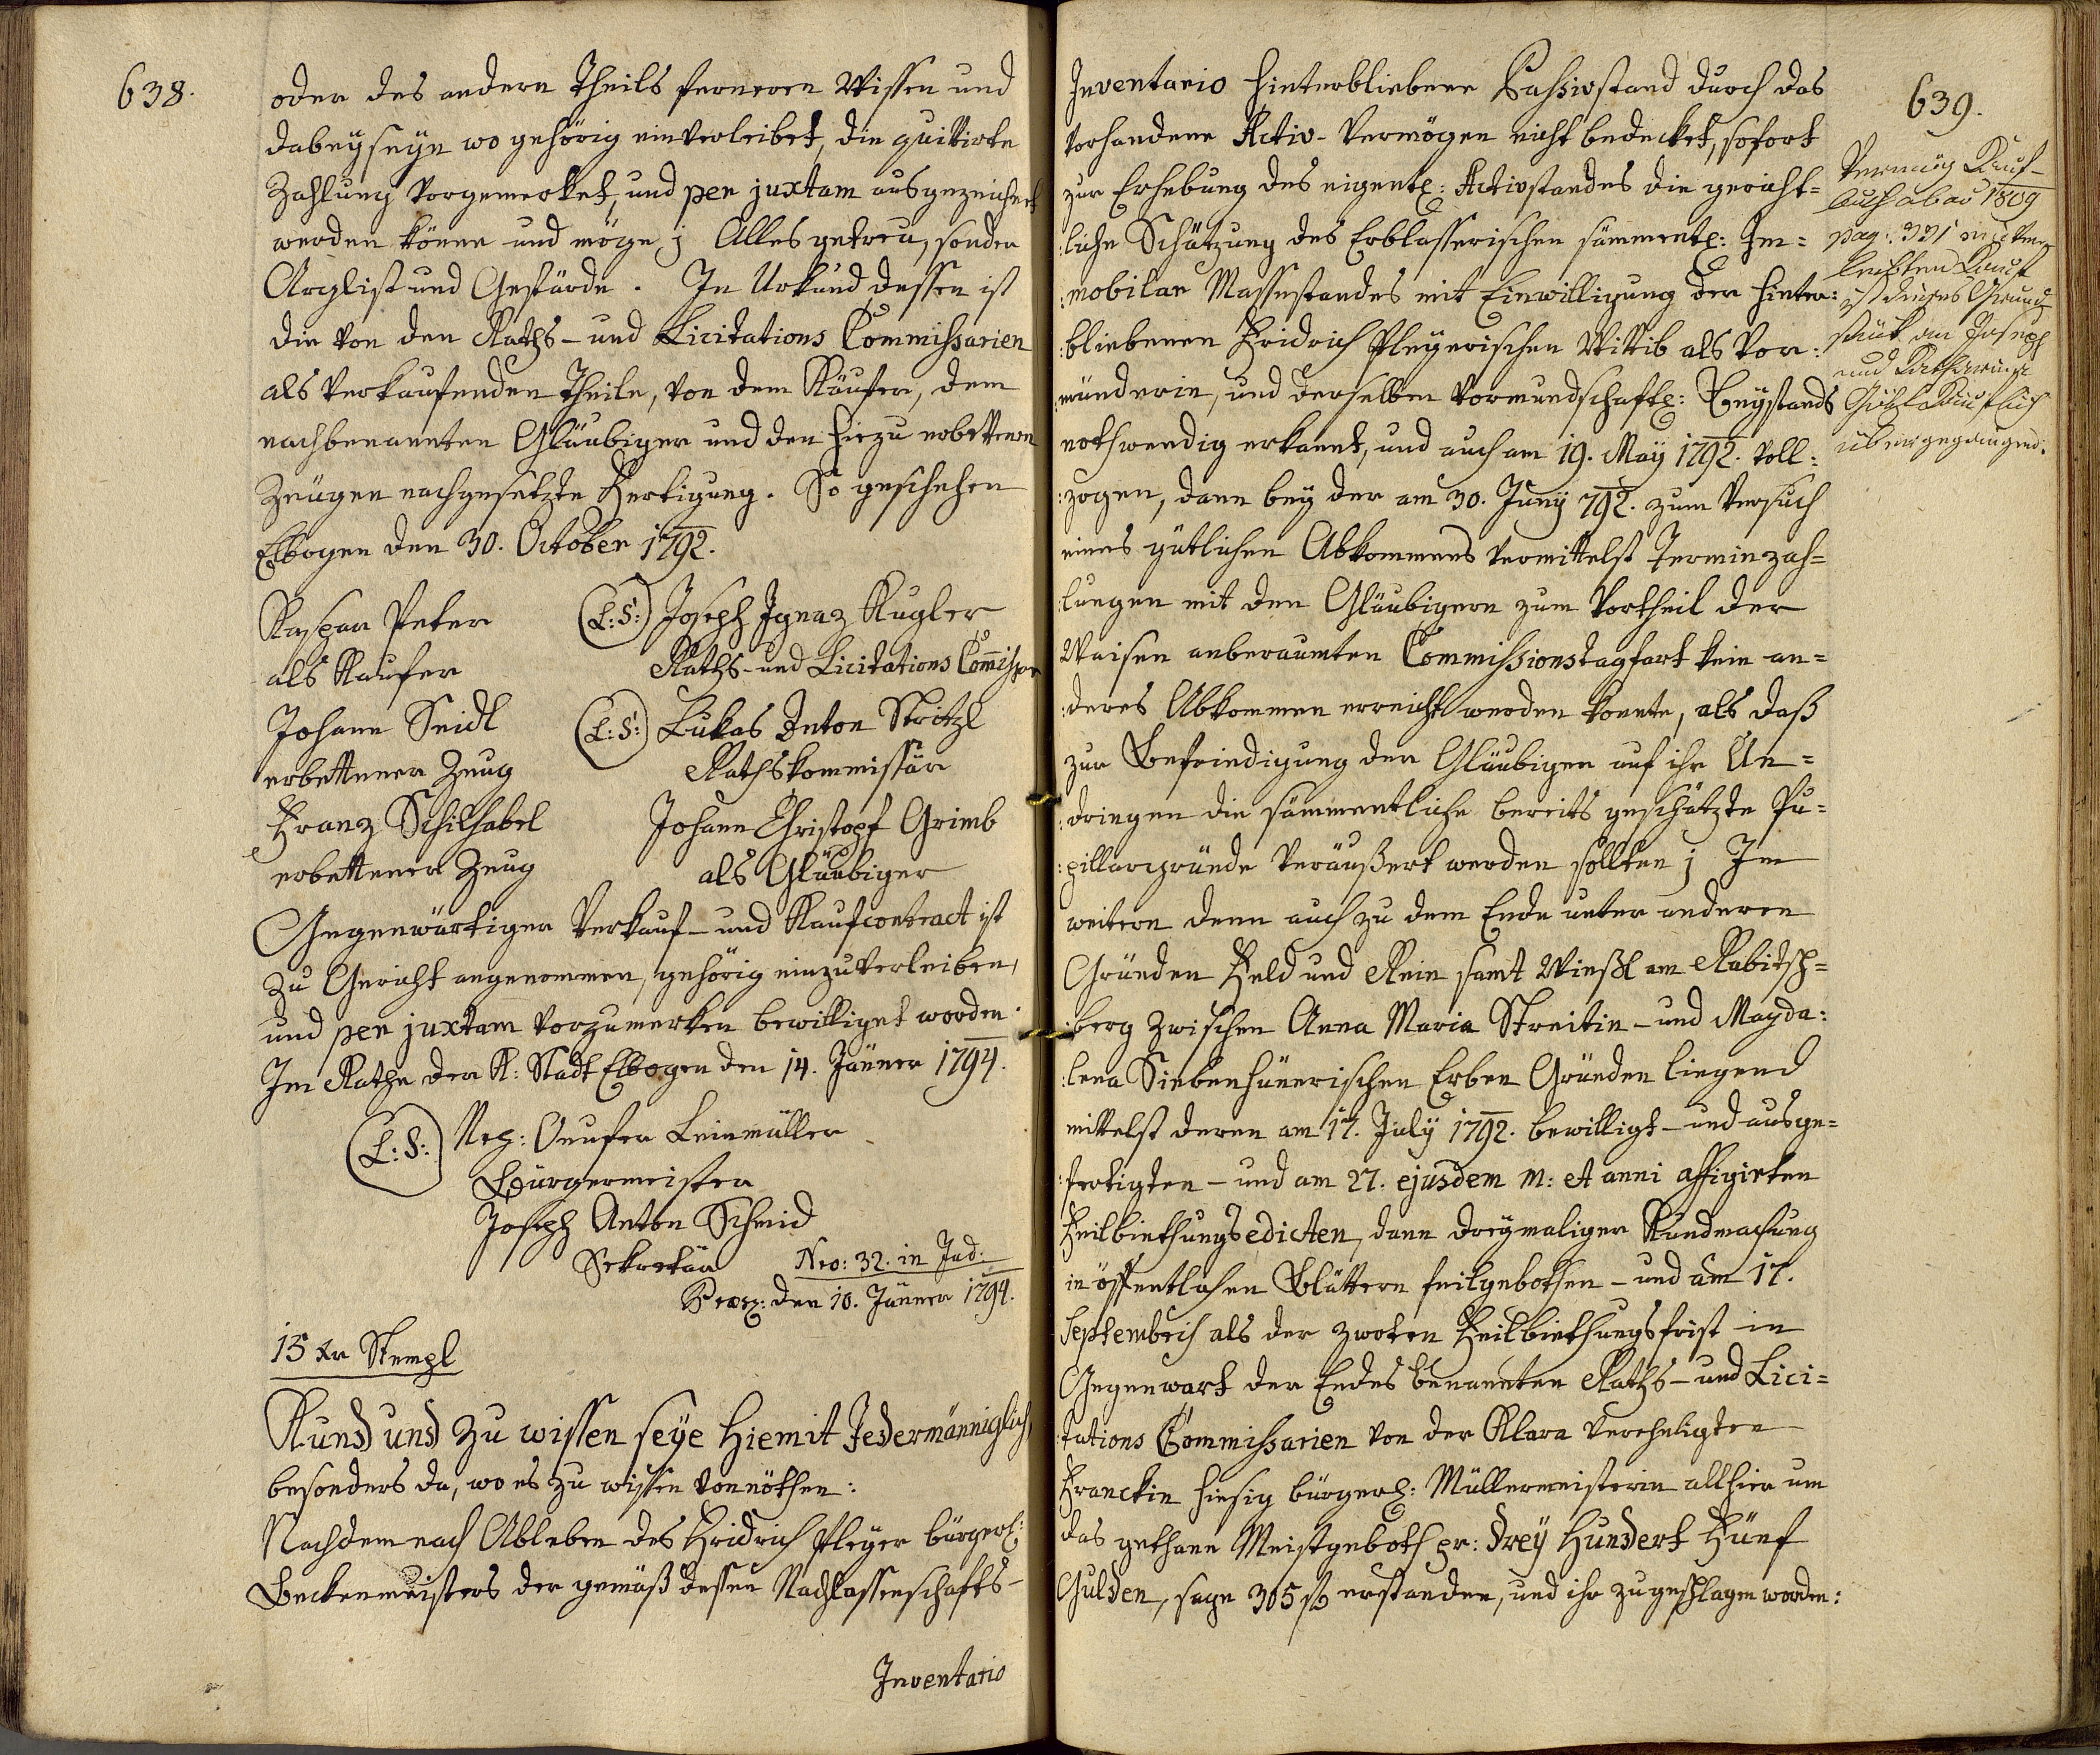 638.
oder des andern Theils ferneren Wissen und
dabeyseyn wo gehörig einverleibet, die quittirte
Zahlung vorgemerket, und per juxtam ausgezeichnet
werden könne und möge; Alles getreu, sonder
Arglist und Gefärde. In Urkund dessen ist
die von den Raths- und Licitations Commissarien
als verkaufenden Theile, von dem Käufer, dem
nachbenannten Gläubiger und den hiezu erbettenen
Zeugen nachgesetzte Fertigung. So geschehen
Elbogen den 30. October 1792.
Kaspar Peter (L:S:) Joseph Ignaz Kugler
als Kaufer Raths- und Licitations Commissar
Johann Seidl (L:S:) Lukas Anton Stritzl
erbettener Zeug Rathskommissär
Franz Schilhabel Johann Christoph Grimb
erbettener Zeug als Gläubiger
Gegenwärtiger Verkauf- und Kaufcontract ist
zu Gericht angenommen, gehörig einzuverleiben,
und per juxtam vorzumerken bewilliget worden.
Im Rathe der K: Stadt Elbogen den 14. Jänner 1794.
(L:S:) Nep: Onufer Leinmüller
Bürgermeister
Joseph Anton Schmid
Sekretär Nro: 32. in Jud:
Praes: den 10. Jänner 1794.
15 kr Stempl
Kund und zu wissen seye hiemit Jedermänniglich
besonders da, wo es zu wissen vonnöthen:
Nachdem nach Ableben des Fridrich Pleyer bürgerl:
Beckenmeisters der gemäß dessen Nachlassenschafts-
Inventario
639.
Inventario hinterbliebene Passivstand durch das
vorhandene Activ-Vermögen nicht bedecket, sofort
zur Erhebung des eigentl: Activstandes die gericht=
:liche Schätzung des Erblasserischen sämmentl: Im=
:mobilar Massestandes mit Einwilligung der hinter:
:bliebenen Fridrich Pleyerischen Wittib als Vor:
:münderin, und derselben vormundschaftl: Beystands
nothwendig erkannt, und auch am 19. May 1792. voll:
:zogen, dann bey der am 30. Juny 792. zum Versuch
eines gütlichen Abkommens vermittelst Terminzah=
:lungen mit den Gläubigern zum Vortheil der
Waisen anberaumten Commissionstagfart kein an=
:deres Abkommen erreicht werden konnte, als daß
zur Befriedigung der Gläubiger auf ihr An=
:dringen die sämmentliche bereits geschätzte Pu=
:pillargründe veräußert werden sollten; Im
weitern denn auch zu dem Ende unter anderen
Gründen Feld und Rein samt Wießl am Rabitsch=
:berg zwischen Anna Maria Streitin- und Magda:
:lena Siebenhünerischen Erben Gründen liegend
mittelst deren am 17. July 1792. bewilligt- und ausge=
:fertigten- und am 27. ejusdem m: et anni affigirten
Feilbiethungsedicten, dann dreymaliger Kundmachung
in öffentlichen Blättern feilgebothen- und am 17.
Septembris als der zwoten Feilbiethungsfrist in
Gegenwart der Endes benannten Raths- und Lici=
:tations Commissarien von der Klara verehligten
Franckin hiesig bürgerl: Müllermeisterin allhier um
das gethane Meistgeboth pr: drey Hundert Fünf
Gulden, sage 305 fl erstanden, und ihr zugeschlagen worden:
Vermög Kauf-
buch ab ao 1809
pag: 321 einver
leibten Kauf
ist dieses Grund
stück an Joseph
und Katharina
käuflich
übergegangen.